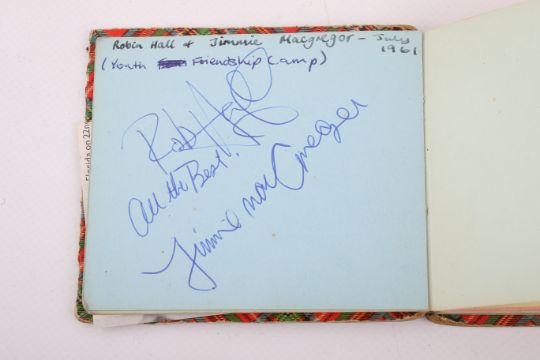 Robin Hall & Jimmie Macgregor - July
1961
(Youth Friendship Camp)
Robin Hall
All the Best.
Jimmie MacGregor
Florida on 22n